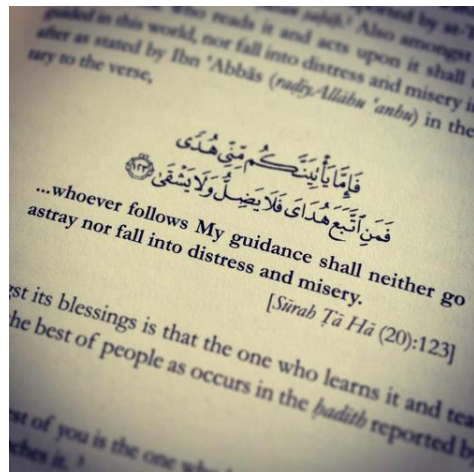 by at-
ṣaḥīḥ.² Also amongst
who reads it and acts upon it shall
guided in this world, nor fall into distress and misery
after as stated by Ibn ‘Abbās (raḍiy Allāhu ‘anhu) in the
tary to the verse,
فَإِمَّا يَأْتِيَنَّكُم مِّنِّي هُدًى
فَمَنِ ٱتَّبَعَ هُدَايَ فَلَا يَضِلُّ وَلَا يَشْقَىٰ ١٢٣
...whoever follows My guidance shall neither go
astray nor fall into distress and misery.
[Sūrah Ṭā Hā (20):123]
gst its blessings is that the one who learns it and tea
he best of people as occurs in the ḥadīth reported by
est of you is the one who
ches it.